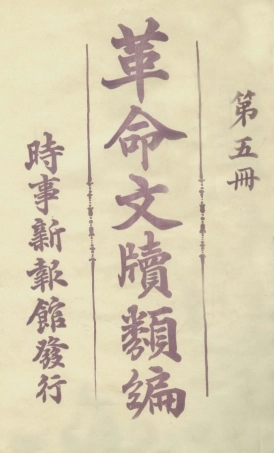 第五冊
革命文牘類編
時事新報館發行